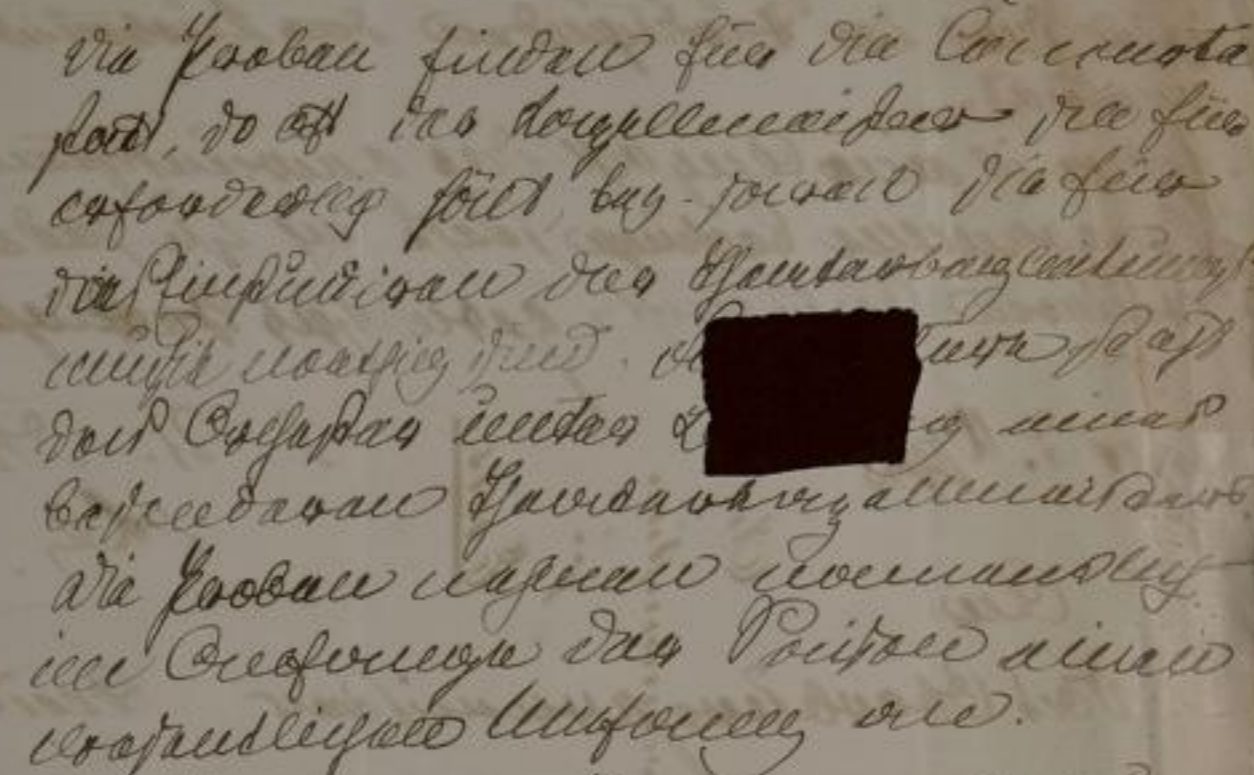 Die Proben finden für die Concerte
statt, so oft der Kapellmeister sie für
erforderlich hält, bez. soweit sie für
das Einstudiren der
nöthig sind.
das Orchester unter eines
besonderen Theaterkapellmeisters.
Die Proben nehmen namentlich
im Anfange der Saison einen
wesentlichen Umfang an.